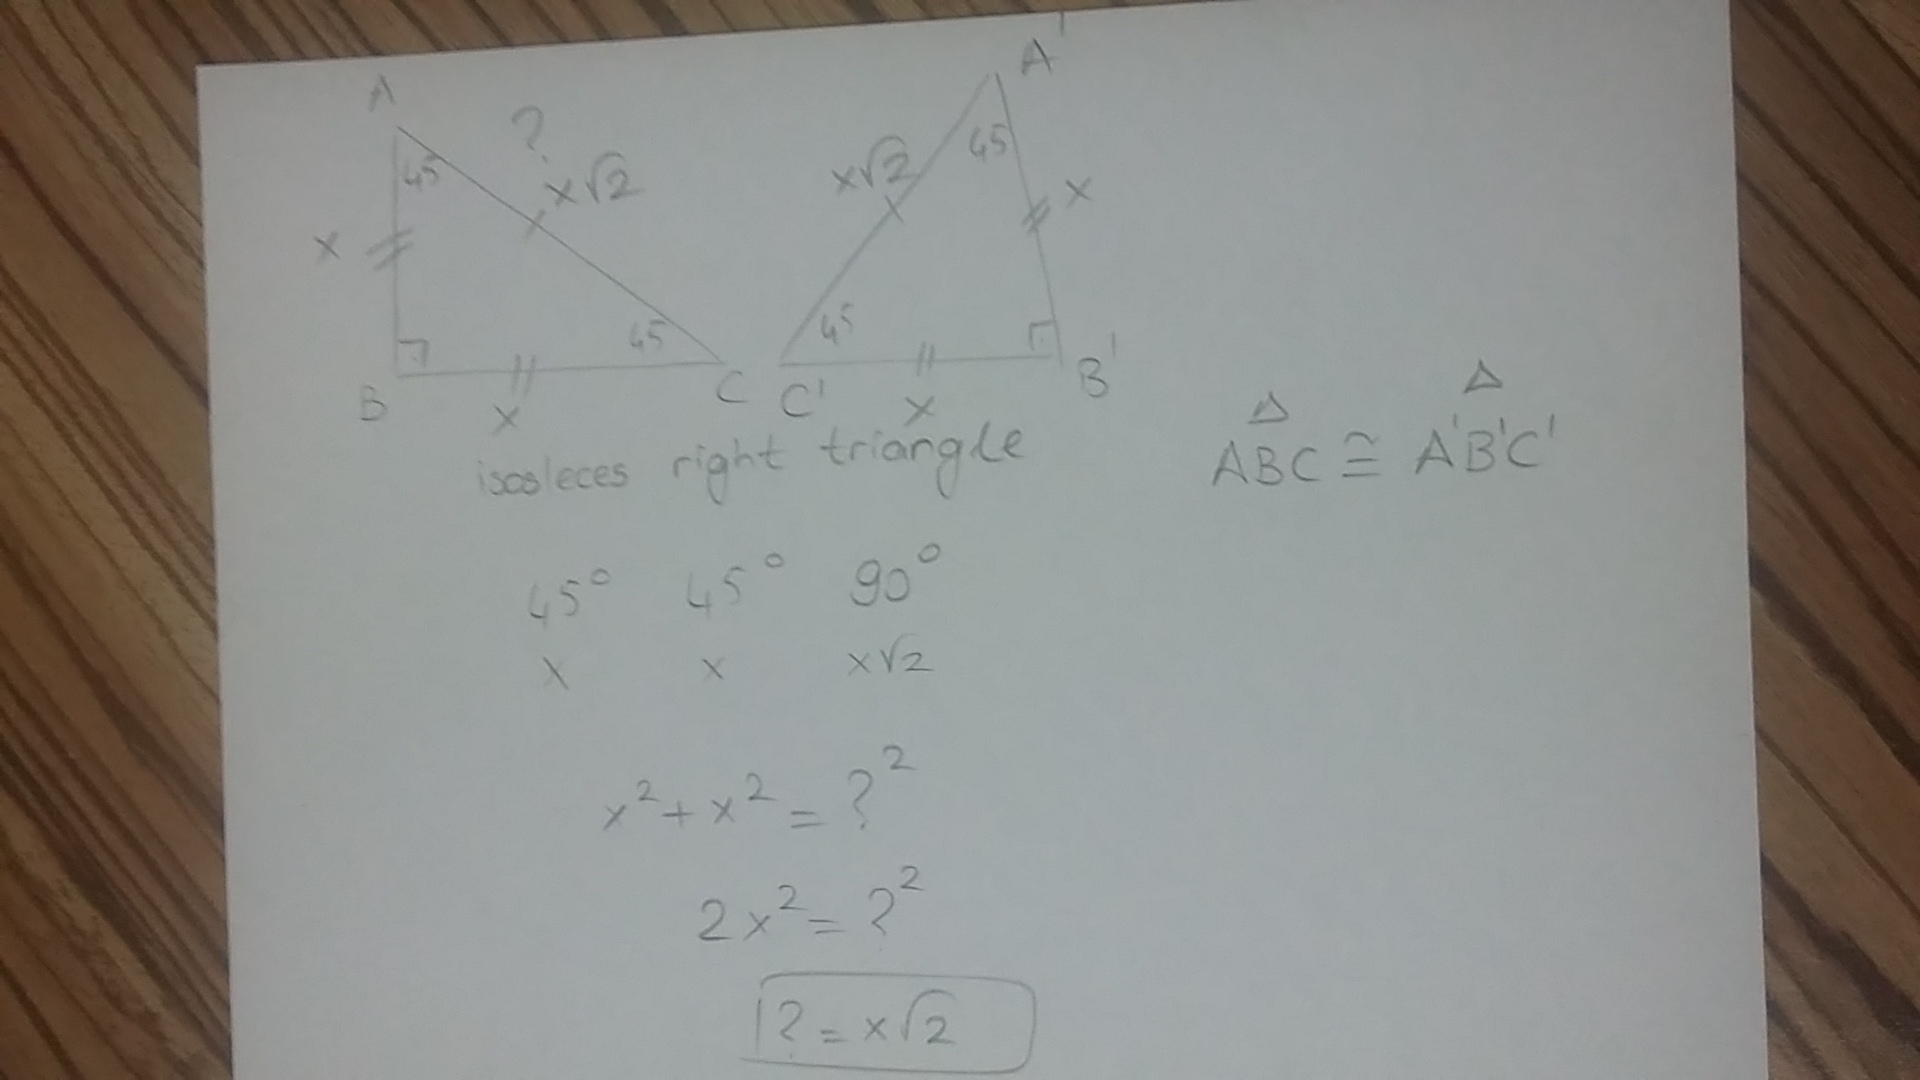 A
45
?
x√2
x
45
B
x
C
A'
45
x√2
x
45
C'
x
B'
isosleces right triangle
△ △
ABC ≅ A'B'C'
45° 45° 90°
x x x√2
x² + x² = ?²
2x² = ?²
? = x√2